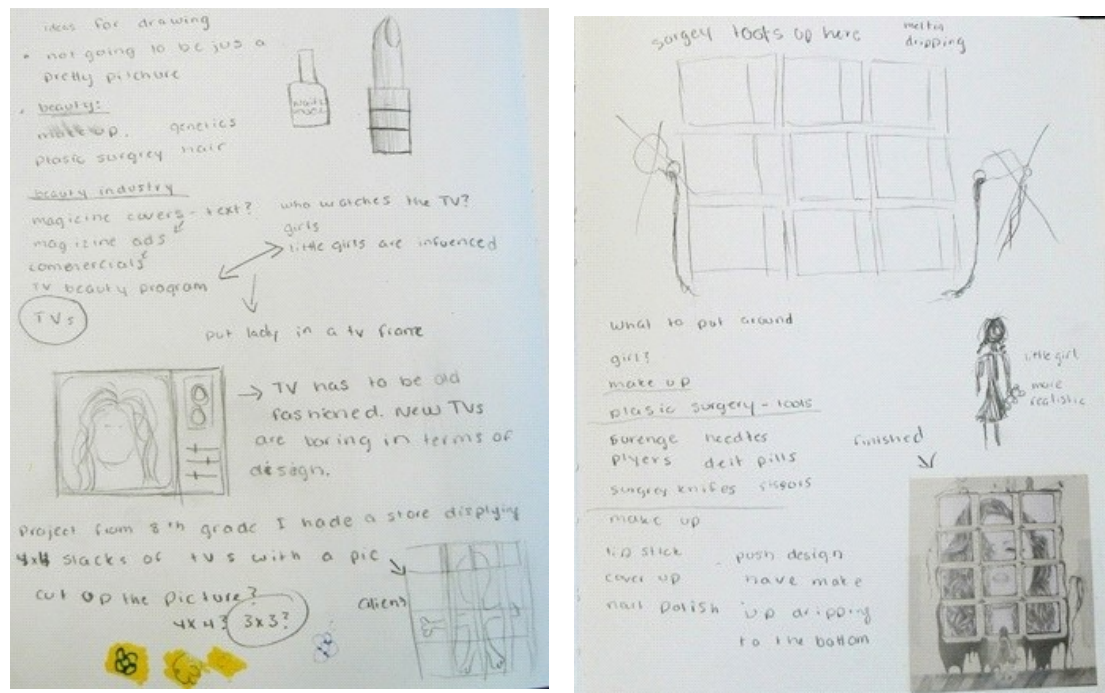 ideas for drawing
• not going to be jus a
pretty pitchure
• beauty:
make up. genetics
plasic surgrey hair
beauty industry
magizine covers - text?
magizine ads
commercials
TV beauty program
TVs
who watches the TV?
girls
little girls are infuenced
put lady in a tv frame
TV has to be old
fashioned. New TVs
are boring in terms of
design.
Project from 8th grade I made a store displying
4x4 stacks of TVs with a pic
cut up the picture?
4x4? 3x3?
aliens
surgey tools up here
melting
dripping
what to put around
girl?
make up
plasic surgery - tools
surenge needles
plyers deit pills
surgrey knifes sissors
make up
lip stick
cover up
nail polish
push design
have make
up dripping
to the bottom
little girl
more
realistic
finished